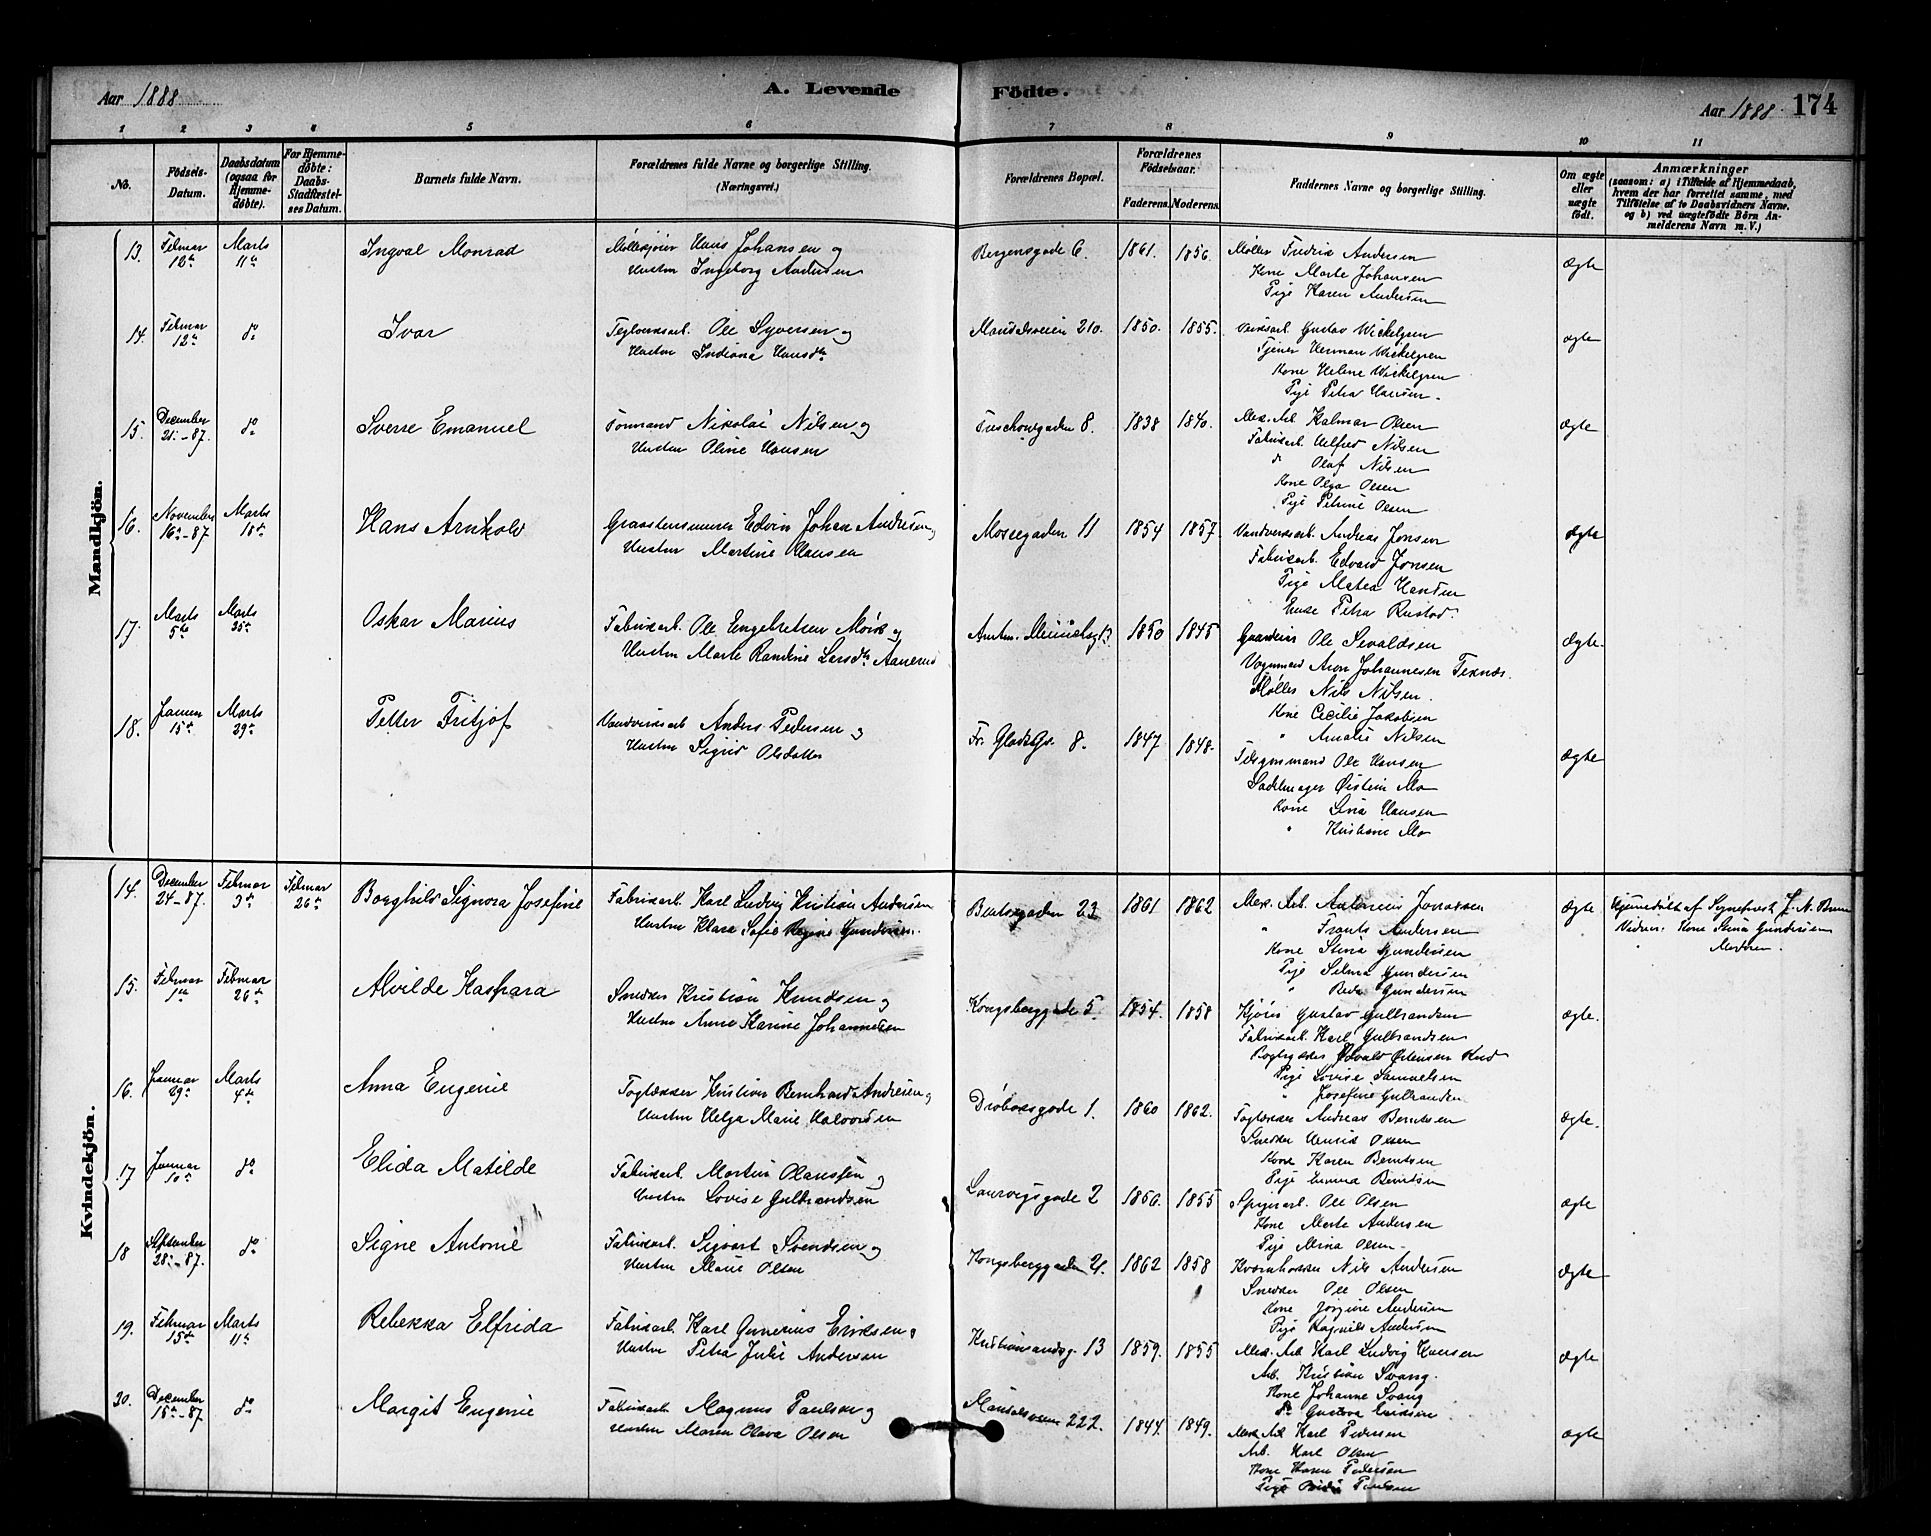 Aar 1888
A. Levende Födte.
Aar 1888. 174
1 2 3 4 5 6 7 8 9 10 11
No.
Födsels-
Datum.
Daabsdatum
(ogsaa for
Hjemme-
döbte).
For Hjemme-
döbte:
Daabs-
Stadfæstel-
ses Datum.
Barnets fulde Navn.
Forældrenes fulde Navne og borgerlige Stilling.
(Næringsvei.)
Forældrenes Bopæl.
Forældrenes
Födselsaar.
Faderens. Moderens.
Faddernes Navne og borgerlige Stilling.
Om ægte
eller
uægte
födt.
Anmærkninger
(saasom: a) i Tilfælde af Hjemmedaab,
hvem der har forrettet samme, med
Tilföielse af to Daabsvidners Navne.
og b) ved uægtefödte Börn An-
melderens Navn m. V.)
Mandkjön.
13. Februar 12te Marts 11te Ingval Monrad
Hans Johansen og
Hustru Ingeborg Andersen
Bergensgade 6. 1861. 1856.
Møller Fredrik Andersen
Kone Marte Johansen
Pige Karen Andersen
Ægte
14. Februar 12te do Ivar
Teglverksarb. Ole Syversen og
Hustru Indiana Hansdtr
210. 1850. 1855.
Gustav Wickelgren
Tjener Herman Wickelgren
Kone Helene Wickelgren
Pige Petra Hansen.
Ægte
15. December 21de-87. do Sverre Emanuel
Formand Nikolai Nilsen og
Hustru Oline Hansen
Treschowsgaden 8. 1838 1840.
Mek. Arb. Kalmar Olsen
Fabrikarb. Nilsen
do Olaf Nilsen
Kone Olga Olsen
Pige Petrine Olsen
Ægte
16. November 16de-87 Marts 18de Hans Arnhold
Graastensmurer Edvin Johan Andersen og
Hustru Martine Hansen
Mossegaden 11 1854 1857.
Vandverksarb. Andreas Jonsen
Fabrikarb. Edvard Jonsen
Pige Matea Hansen
Enke Petra Rustad.
Ægte
17. Marts 5te Marts 25de Oskar Marius
Fabrikarb. Ole Engebretsen Mörk og
Hustru Marte Randine Larsdtr Aanerud
1850 1845
Ole Sevaldsen
Vognmand Aron Johannesen Teknæs.
Møller Nils Nilsen.
Kone Cecilie Jakobsen
" Amalie Nilsen
Ægte.
18. Januar 15de Marts 29de Petter Fritjof
Vandverksarb Anders Pedersen og
Hustru Sigrid Olsdatter
Fr. Gladsgs. 8. 1847 1848.
Ole Hansen
Sadelmager Østein Mo
Kone Lina Hansen
" Kristiane Mo
Ægte
Kvindekjön.
14. December 24-87. Februar 3de Februar 26de Borghild Signora Josefine
Fabrikarb. Karl Ludvig Kristian Andersen
Hustru Klara Sofie Regine Gundersen.
Bentsegaden 23 1861 1862
Mek. Arb. Antonius Jonassen
" Frants Andersen
Kone Stina Gundersen
Pige Selma Gundersen
" Beda Gundersen
Ægte
Hjemmedöbt af Sognepræst J. N. Brun
Vidner: Kone Stina Gundersen
" Moderen.
15. Februar 1ste Februar 26de Alvilde Kaspara
Snedker Kristian Knudsen og
Hustru Anne Karine Johannesen
Kongsberggade 5. 1854. 1858
Gustav Gulbrandsen
Fabrikarb. Karl Gulbrandsen
Pige Lovise Samuelsen
" Josefine Gulbrandsen
Ægte.
16. Januar 29de Marts 4de Anna Eugenie
Taglækker Kristian Bernhard Andresen og
Hustru Helga Marie Halvorsen
Dröbaksgade 1. 1860 1862.
Taglækker Andreas Berntsen
Snedker Henrik Olsen
Kone Karen Berntsen
Pige Emma Berntsen
Ægte.
17 Januar 10de do Elida Matilde
Fabrikarb. Martin Olaussen og
Hustru Lovise Gulbrandsen
Laurvigsgade 2 1850. 1855
Spigerarb. Ole Olsen
Kone Marte Andersen
Pige Mina Olsen
Ægte
18 September 28de-87. do Signe Antonie
Fabrikarb. Sigvart Svendsen og
Hustru Marie Olsen
Kongsberggaden 21. 1862 1858
Nils Andersen
Snedker Ole Olsen
Kone Jörgine Andersen
Pige Ragnild Andersen
Ægte
19. Februar 15de Marts 11te Rebekka Elfrida
Fabrikarb. Karl Gunerius Eriksen og
Hustru Petra Julie Andersen
Kristiansandsg. 13 1859. 1855
Mek. Arb Karl Ludvig Hansen
Arb. Kristian Svang.
Kone Johanne Svang
do Gustava Eriksen
Ægte
20. December 15de-87 do Margit Eugenie
Fabrikarb. Magnus Paulsen og
Hustru Maren Olava Olsen
222. 1844. 1849.
Mek Arb Karl Pedersen
Arb. Karl Olsen
Kone Karen Pedersen
Pige Paulsen
Ægte